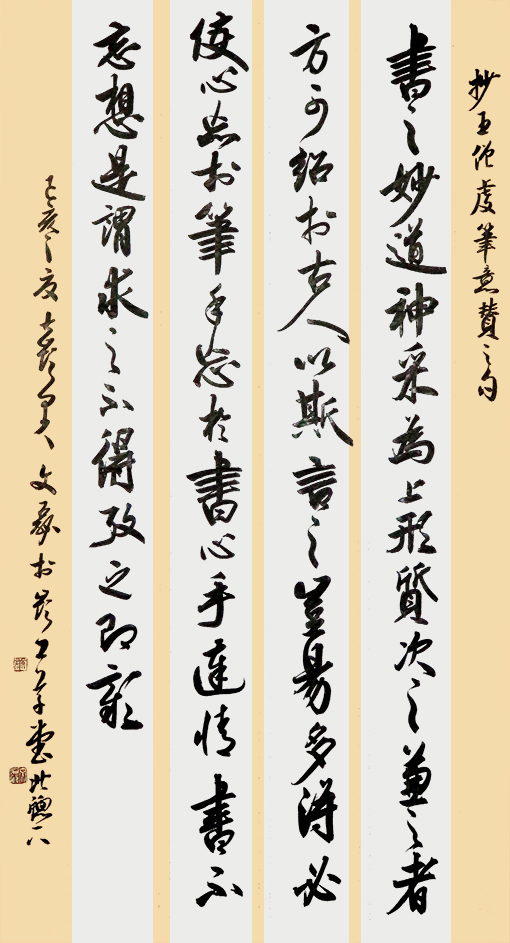 抄王僧虔筆意贊之句
書之妙道神采為上形質次之兼之者
方可紹於古人以斯言之豈易多得必
使心忘於筆手忘於書心手達情書不
忘想是謂求之不得考之即彰
己亥之夏 文 於 草堂北牕下